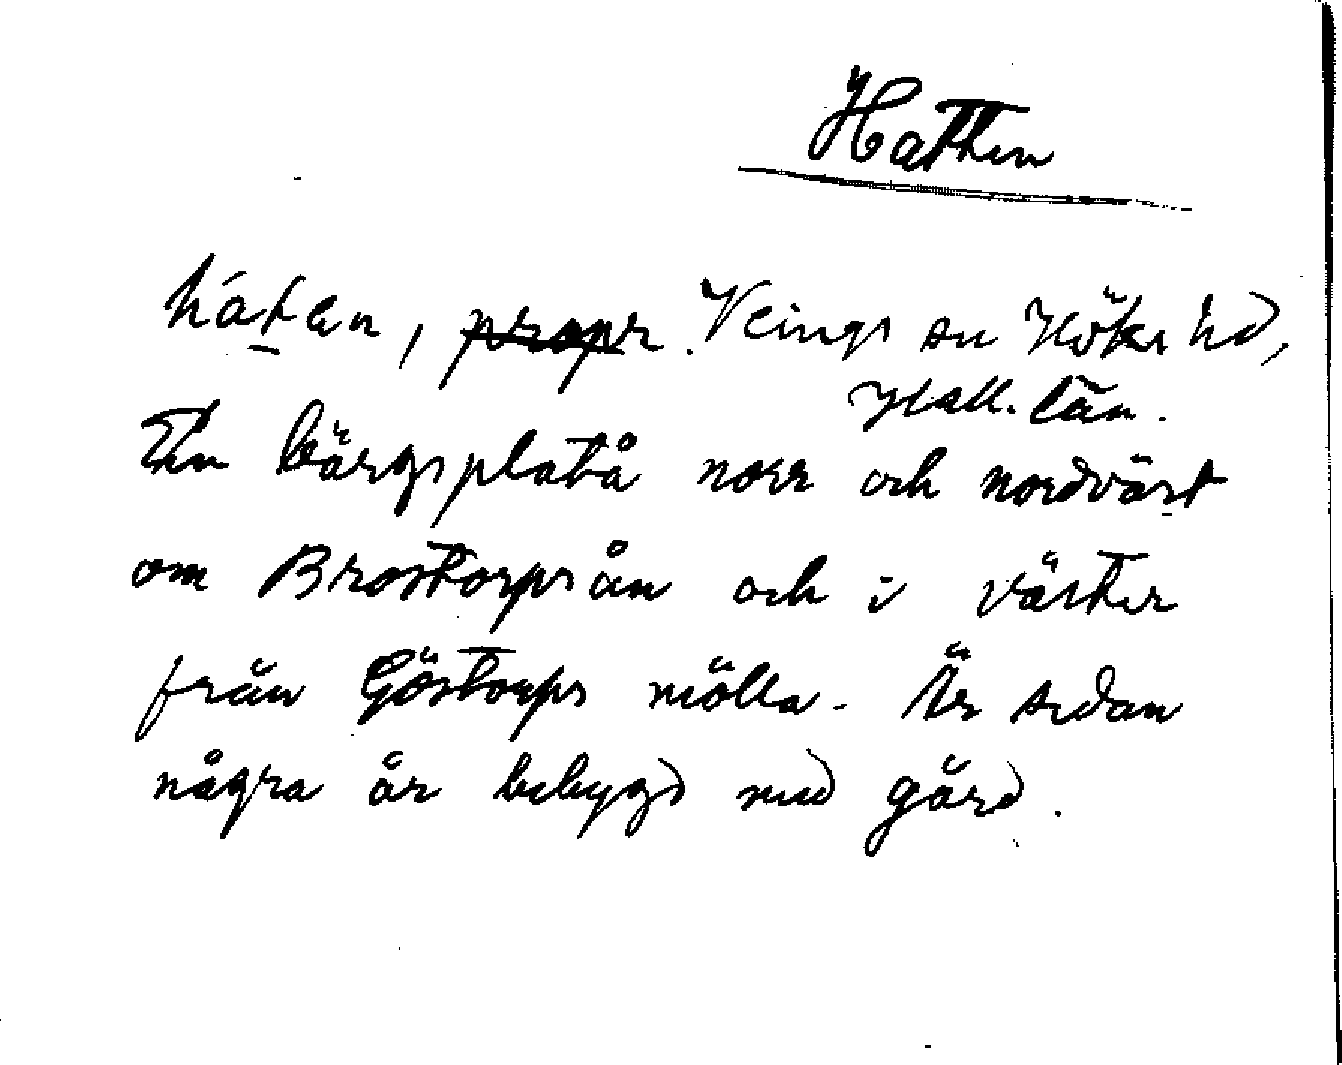 Hatten
hátan, propr. Veinge sn Höks hd,
Hall. län.
En bärgsplatå norr och nordväst
om Brostorpsån och i väster
från Göstorps mölla. Är sedan
några år bebygd med gård.